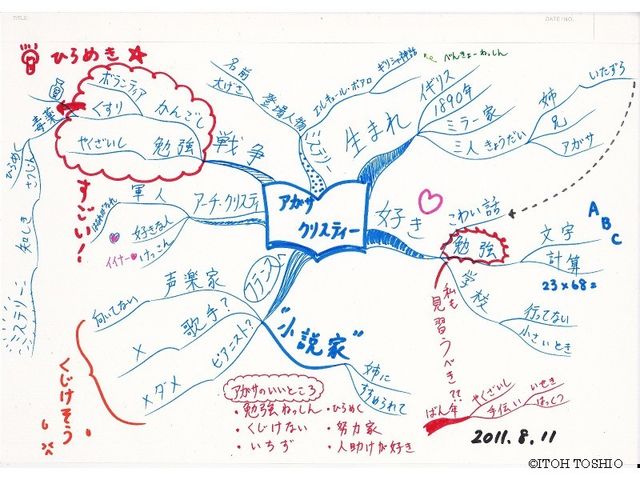 TITLE
DATE/NO.
ひらめき
ボランティア
くすり
かんごし
やくざいし
勉強
毒薬
ひらめく
さつじん
知しき
ミステリーに
すごい!
戦争
名前
大げさ
登場人物
エルキュール・ポアロ
ギリシャ神話
べんきょーねっしん
ミステリー
生まれ
イギリス
1890年
ミラー家
三人きょうだい
姉
兄
アガサ
いたずら
アガサ
クリスティー
アーチ・クリスティ
軍人
好きな人
けっこん
好き
こわい話
勉強
文字
計算
A
B
C
23×68=
学校
行ってない
小さいとき
私も
見習うべき??
声楽家
向いてない
歌手?
×
ピアニスト?
×ダメ
くじけそう
"小説家"
姉に
すすめられて
アガサのいいところ
・勉強ねっしん
・ひらめく
・くじけない
・努力家
・いちず
・人助けが好き
ばん年
やくざいし
手伝い
いせき
はっくつ
2011.8.11
©ITOH TOSHIO